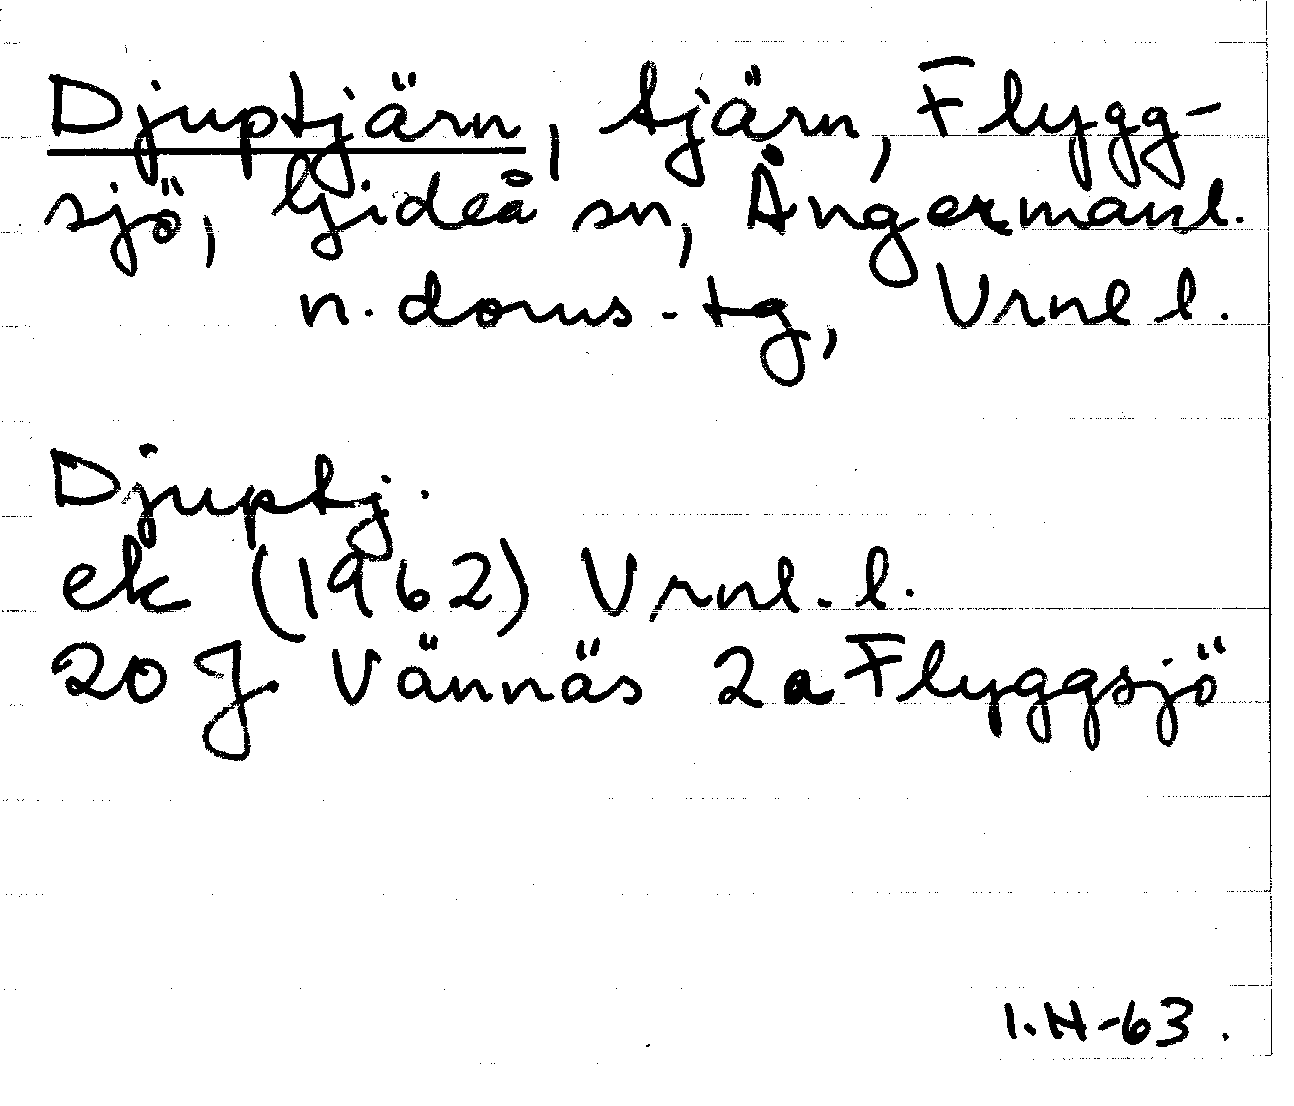 Djuptjärn, tjärn, Flygg-
sjö, Gideå sn, Ångermanl.
n. doms.-tg, Vrnl l.
Djuptj.
ek (1962) Vrnl. l.
20 J Vännäs 2a Flyggsjö
I.H-63.